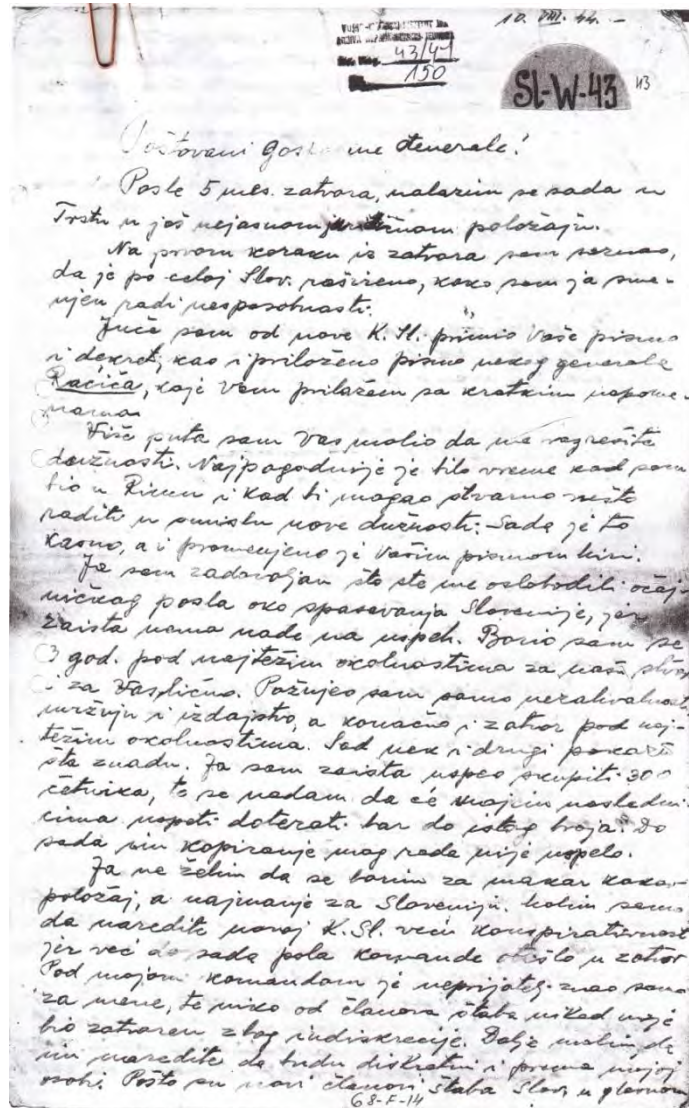 10. VIII. 44. -
43/41
150
Sl-W-43 43
Poštovani gos me đenerale!
Posle 5 mes. zatvora, nalazim se sada u
Trstu u još nejasnom položaju.
Na prvom koraku iz zatvora sam saznao,
da je po celoj Slov. rašireno, kako sam ja sme-
njen radi nesposobnosti.
Juče sam od nove K. Sl. primio Vaše pismo
i dekret, kao i priloženo pismo nekog generala
Račića, koje Vam prilažem sa kratkim napome-
nama
Više puta sam Vas molio da me razrešite
dužnosti. Najpogodnije je bilo vreme kad sam
bio u Rimu i kad bi mogao stvarno nešto
raditi u smislu nove dužnosti. Sada je to
kasno, a i promenjeno je Vašim pismom
Ja sam zadovoljan što ste me oslobodili očaj-
ničkog posla oko spasavanja Slovenije, jer
zaista nema nade na uspeh. Borio sam se
3 god. pod najtežim okolnostima za našu stvar
i za Vas lično. Požnjeo sam samo nezahvalnost
mržnju i izdajstvo, a konačno i zatvor pod naj-
težim okolnostima. Sad nek i drugi pokažu
šta znadu. Ja sam zaista uspeo skupiti 300
četnika, te se nadam da će mojim nasledni
cima uspeti doterati bar do istog broja. Do
sada im kopiranje mog rada nije uspelo.
Ja ne želim da se borim za makar kakav
položaj, a najmanje za Sloveniju. Molim samo,
da naredite novoj K. Sl. veću konspirativnost
jer već do sada pola komande otišlo u zatvor
Pod mojom komandom je neprijatelj znao samo
za mene, te niko od članova štaba nikad nije
bio zatvoren zbog indiskrecije. Dalje molim da
im naredite da budu diskretni i prema mojoj
osobi. Pošto su novi članovi štaba Slov. u glavnom
68-F-14